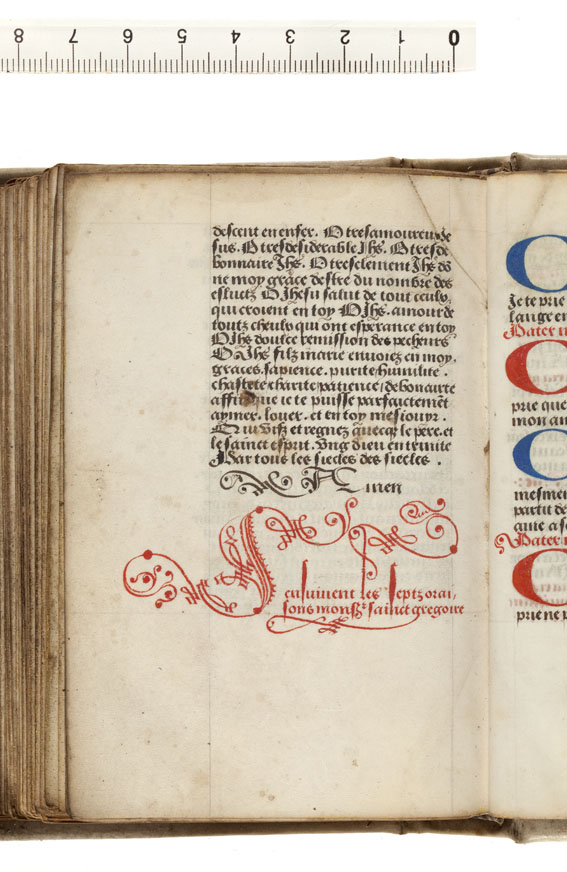 8 7 6 5 4 3 2 1 0
descent en enfer. O tresamoureux Je
sus. O tresdesiderable Jhs. O tresde
bonnaire Jhs. O tresclement Jhs dō
ne moy grace destre du nombre des
esleutz O Jhesu salut de tout ceulx,
qui croient en toy O Jhs. amour de
toutz cheulx qui ont esperance en toy
O Jhs doulce remission des pecheurs
O Jhs filz marie envoiez en moy.
graces. sapience. purite / humilite.
chastete / charite / patience / debonairte
affin que ie te puisse parfaictemēt
aymer. louer. et en toy mesiouyr.
Qui vifz et regnez avecqz le pere. et
le sainct esprit. Ung dieu en trinite
Par tous les siecles des siecles.
Amen
Sensuivent les septz orai,
sons monsr sainct gregoire
Je te prie
lange en
Pater n
prie que
mon am
mesmen
partit de
quie a s
Pater n
prie ne p